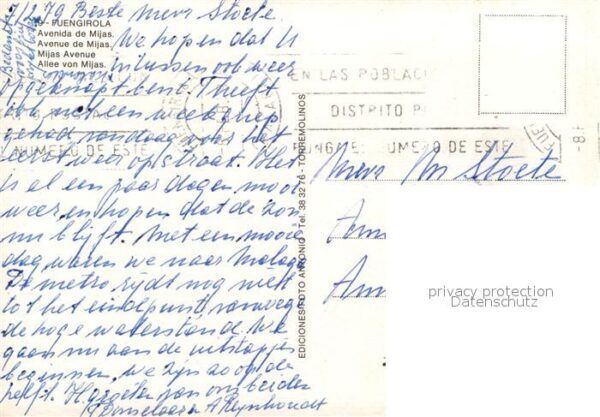 7/2.79 Beste Mevr Stoete.
9 - FUENGIROLA
Avenida de Mijas.
Avenue de Mijas.
Mijas Avenue
Allee von Mijas.
We hopen dat U
intussen ook weer
opgeknapt bent. Theeft
ook net een week griep
gehad vandaag voor het
eerst weer op straat. Het
is al een paar dagen mooi
weer en hopen dat de zon
nu blijft. Met een mooie
dag waren we naar Malaga
De metro rijdt nog niet
tot het eindpunt vanwege
de hoge waterstand. We
gaan nu aan de uitstapjes
beginnen, we zijn zo op de
helft. H groeten van ons beiden
EN LAS POBLAC
DISTRITO P
PONGA EL NUMERO DE ESTE
NUMERO DE ESTE
EDICIONES FOTO ANTONIO - Tel. 38 32 76 - TORREMOLINOS
Mevr M Stoete
Am
Am
privacy protection
Datenschutz